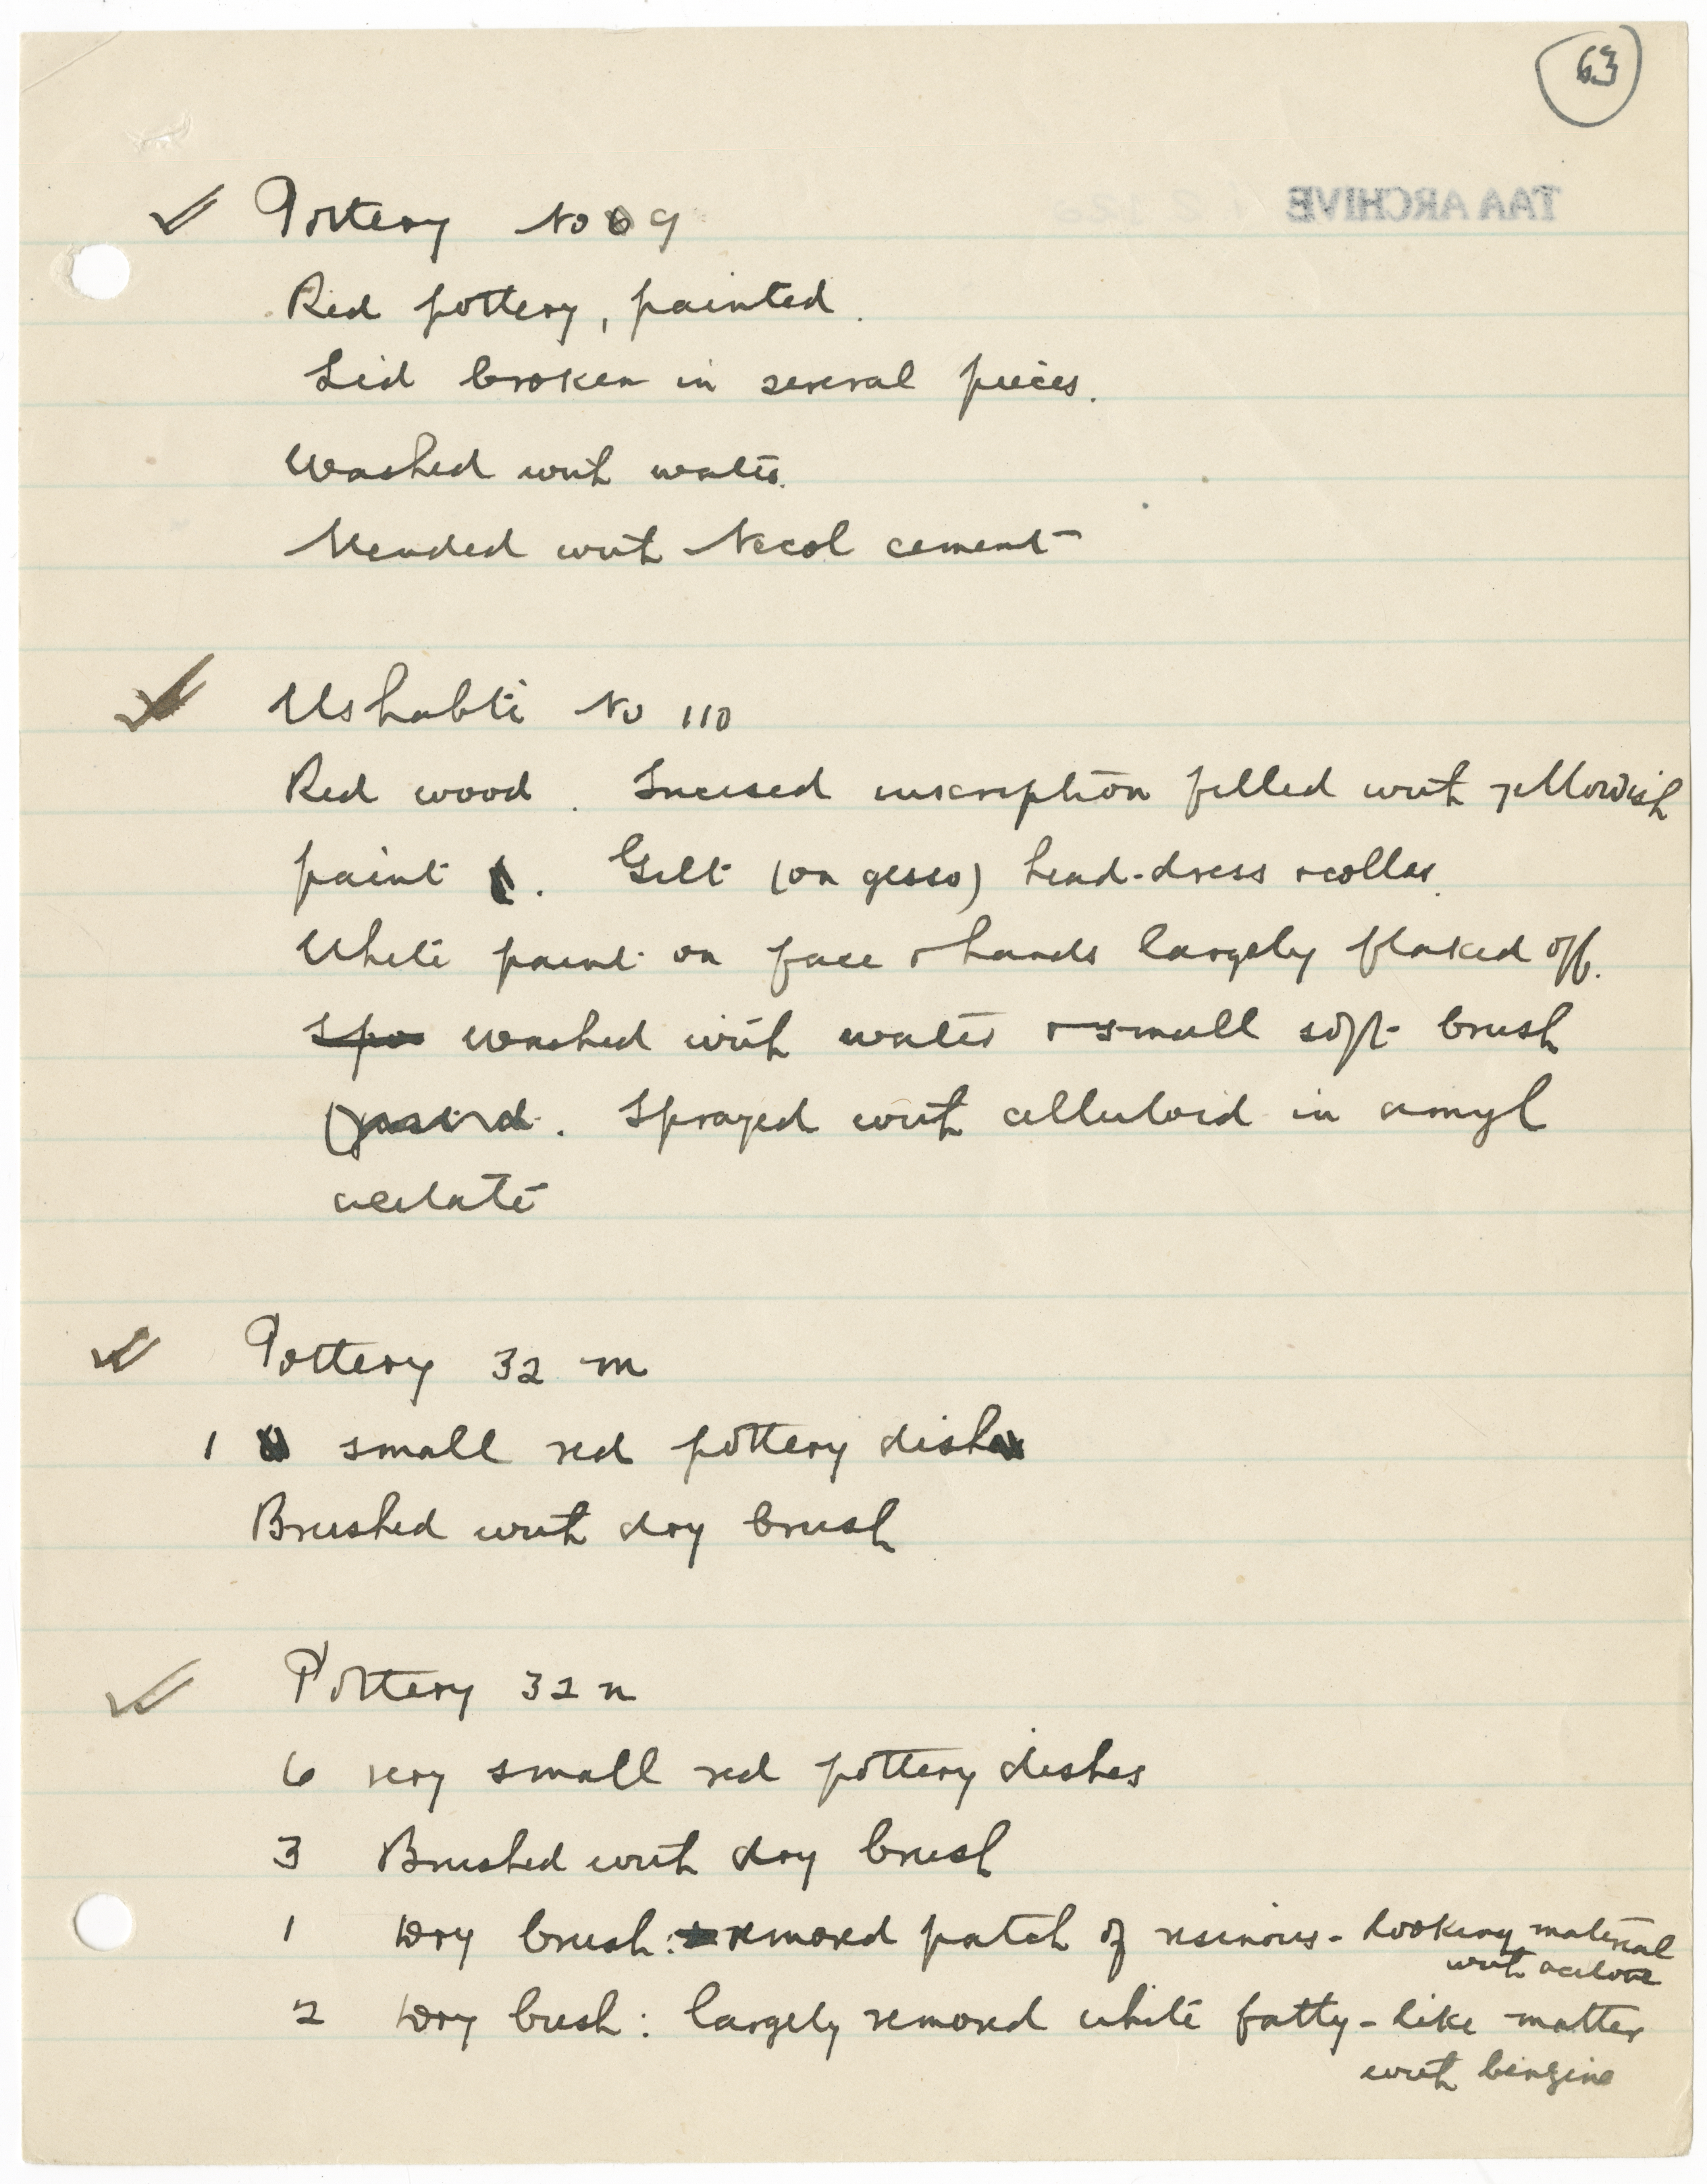 63
TAA ARCHIVE
Pottery No 9
Red pottery, painted.
Lid broken in several pieces.
Washed with water.
Mended with Necol cement
Ushabti No 110
Red wood. Incised inscription filled with yellowish
paint. Gilt (on gesso) head-dress & collar.
White paint on face & hands largely flaked off.
Spo washed with water & small soft brush
. Sprayed with celluloid in amyl
acetate
Pottery 32 m
1 small red pottery dish
Brushed with dry brush
Pottery 32 n
6 very small red pottery dishes
3 Brushed with dry brush
1 Dry brush: removed patch of resinous-looking material
with acetone
2 Dry brush: largely removed white fatty-like matter
with benzine